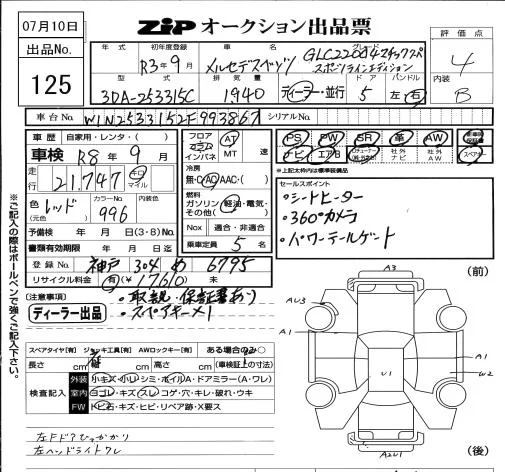 07月10日
ZiP オークション出品票
出品No.
125
年式
初年度登録
R3年9月
車名
メルセデスベンツ
グレード
GLC220d4マチック
スポーツラインエディション
評価点
4
内装
B
型式
3DA-253315C
排気量
1,940
ディーラー・並行
ドア
5
ハンドル
左・右
車台No.
W1N2533152F993867
シリアルNo.
車歴
自家用・レンタ・( )
車検
R8年9月
走行
21,747
キロ
マイル
色(元色)
レッド
カラーNo.
996
内装色
予備検 年 月 日(3・8) No.
書類有効期限 年 月 日迄
登録No.
神戸 304 め 6795
リサイクル料金 有(¥ 17610) 未
フロア
コラム
インパネ
AT
MT
速
冷房
無・C・AC・AAC・( )
燃料
ガソリン・軽油・電気・
その他( )
Nox 適合・非適合
乗車定員 5 名
PS PW SR 革 AW
ナビ エアB 社外ナビ 社外AW スペアキー
*上記太枠内は標準装備品
セールスポイント
・シートヒーター
・360°カメラ
・パワーテールゲート
〈注意事項〉
ディーラー出品
・取説・保証書あり
・スペアキー×1
※ご記入の際はボールペンで強くご記入下さい。
スペアタイヤ[有] ジャッキ工具[有] AWロックキー[有] ある場合のみ○
長さ cm 幅 cm 高さ cm (車検証上の寸法)
検査記入
外装 小キズ・小レ・シミ・ホイル・A・ドアミラー(A・ワレ)
室内 ヨゴレ・キズ・スレ・コゲ・穴・キレ・破れ・ウキ
FW トビ石・キズ・ヒビ・リペア跡・X要ス
左Fドアひっかかり
左ヘンドライトワレ
(前)
A3
AU3
A1
A1
W2
U1
A2U1
(後)